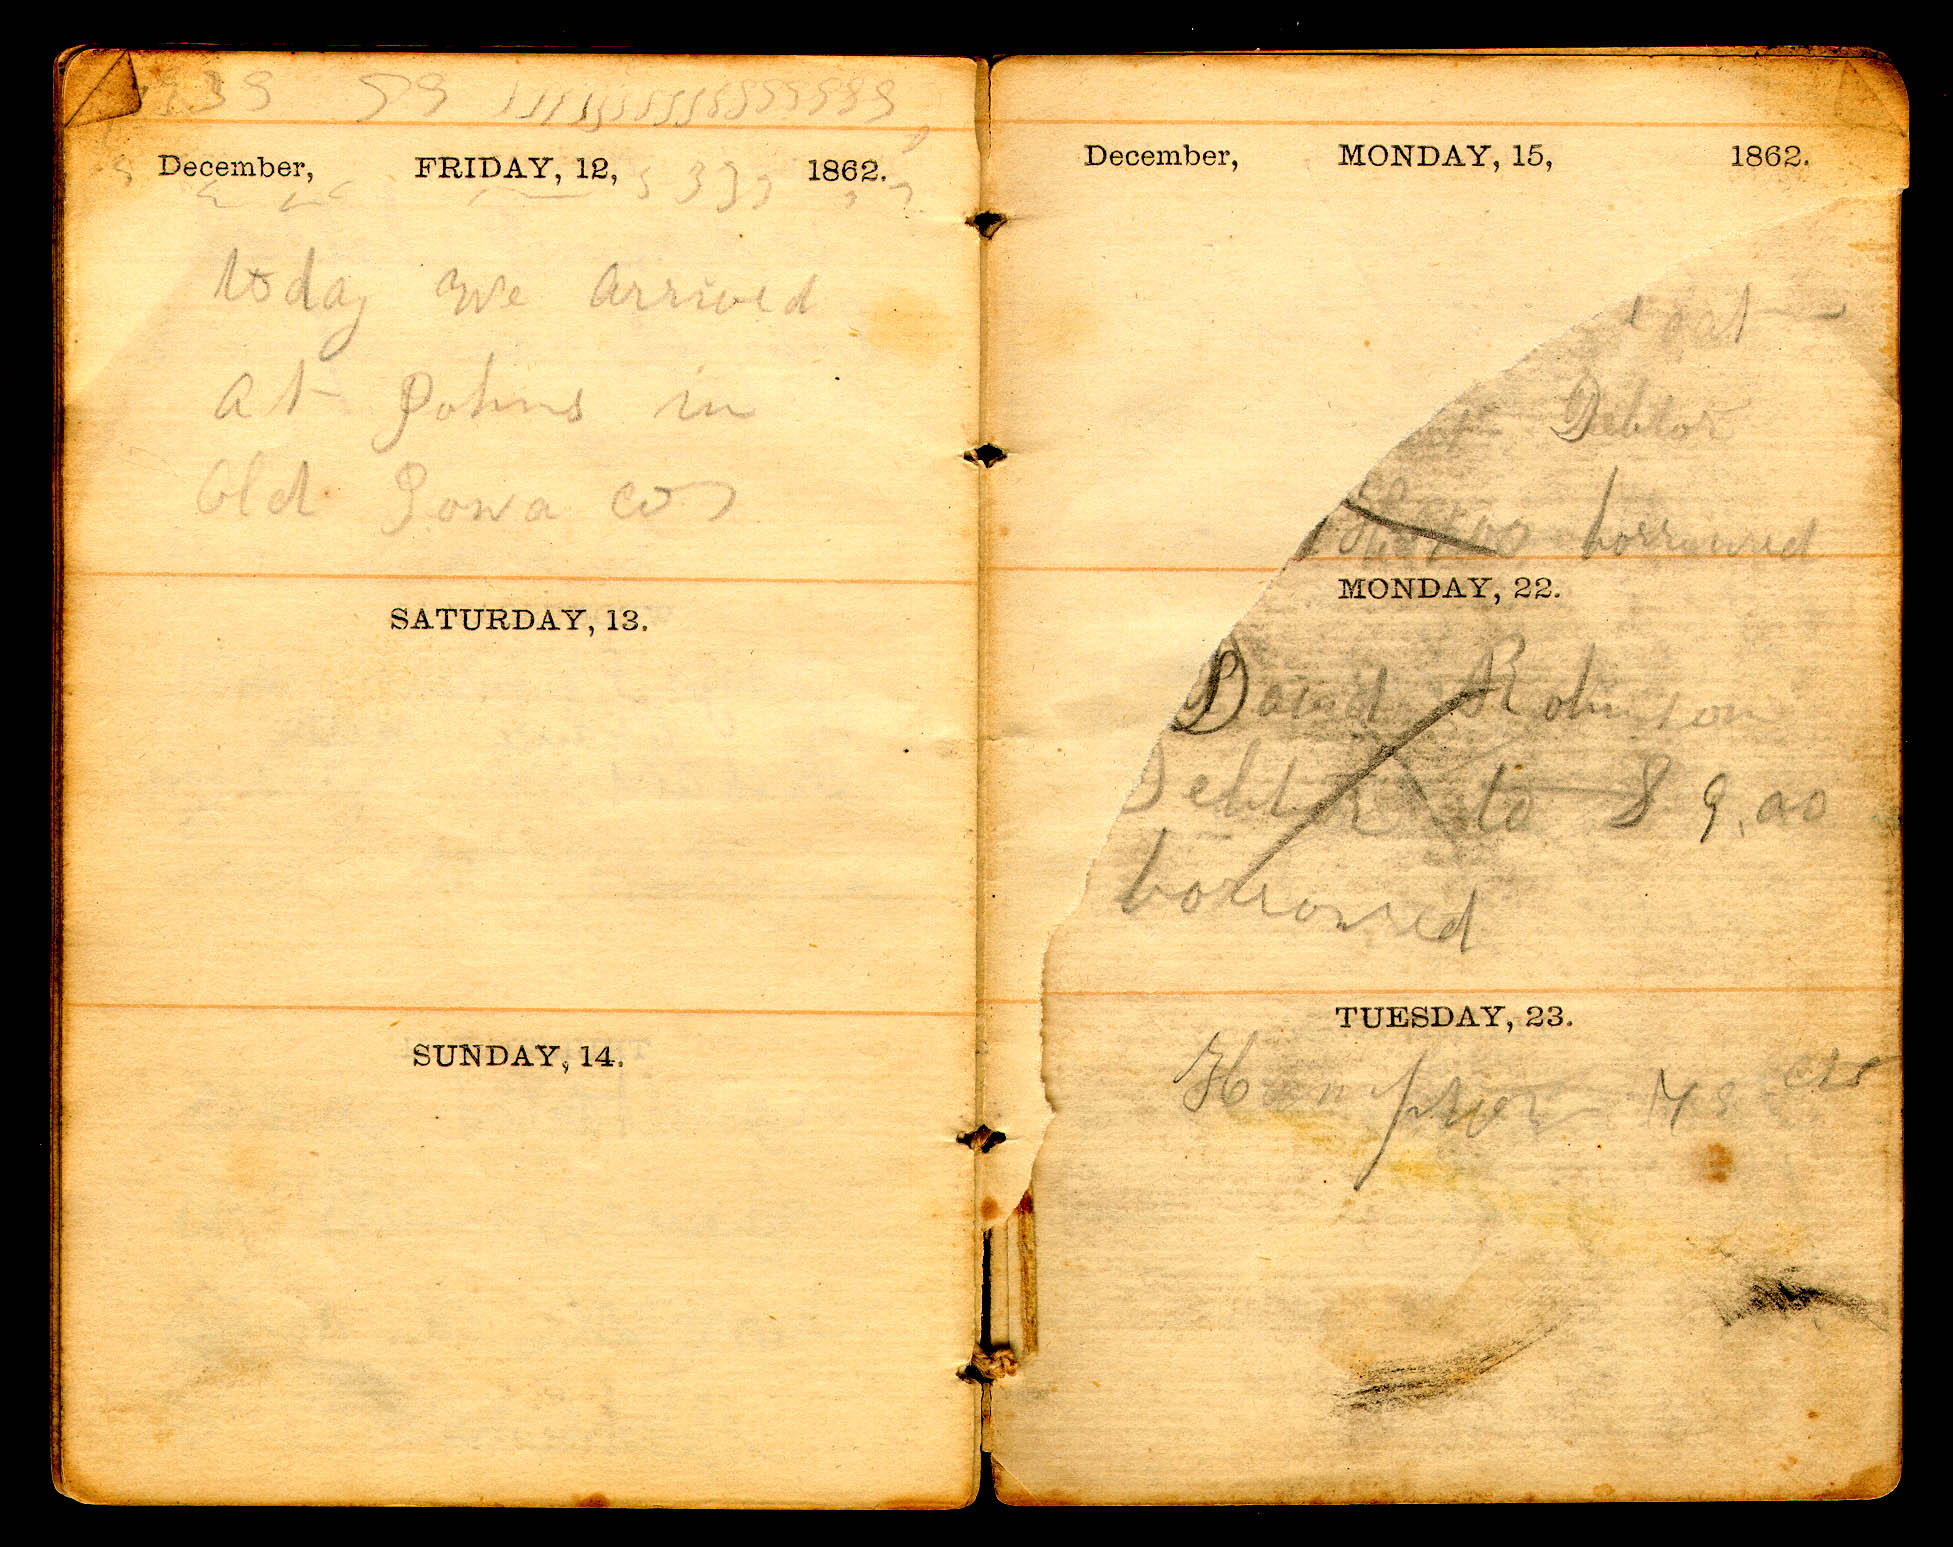 December, FRIDAY, 12, 1862.
today we arrived
at Johns in
Old Iowa co
SATURDAY, 13.
SUNDAY, 14.
December, MONDAY, 15, 1862.
Debtor
borrowed
MONDAY, 22.
David Robinson
Debtor to $ 9.00
borrowed
TUESDAY, 23.
cts